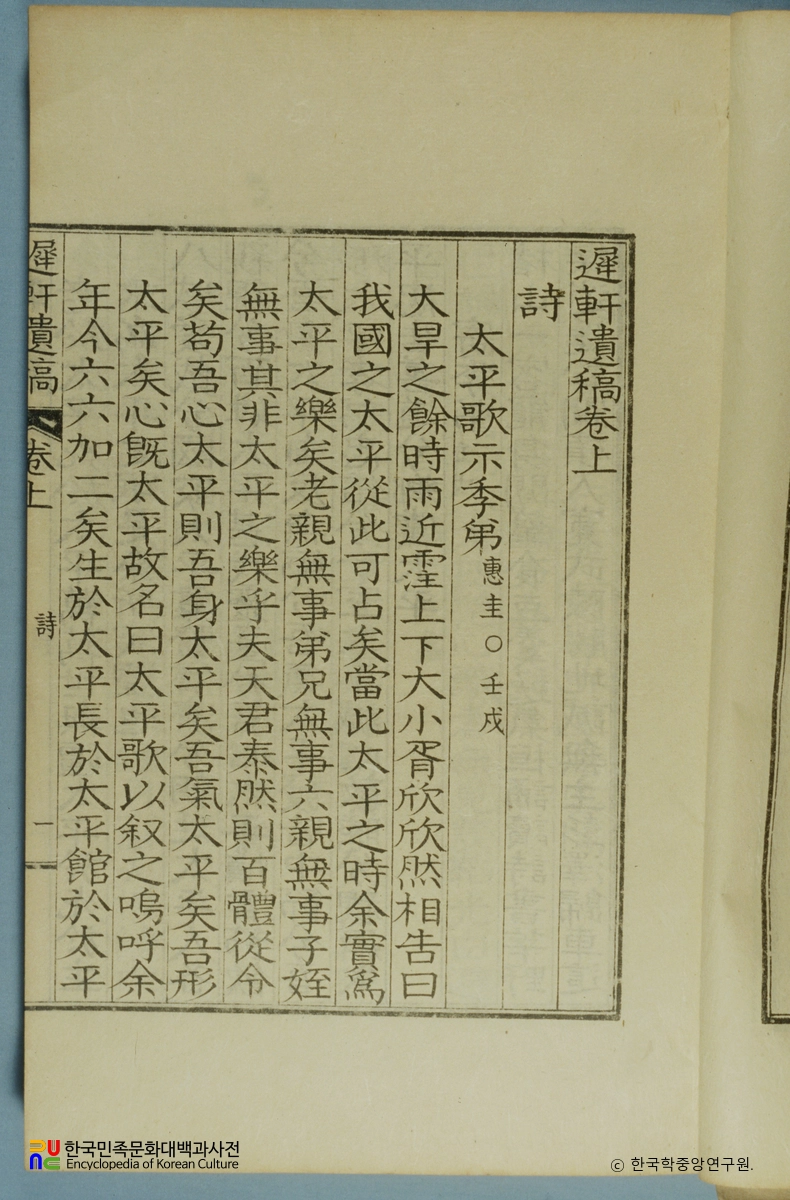 遲軒遺稿卷上
詩
太平歌示季弟惠圭○壬戌
大旱之餘時雨近霔上下大小胥欣欣然相告曰
我國之太平從此可占矣當此太平之時余實爲
太平之樂矣老親無事弟兄無事六親無事子姪
無事其非太平之樂乎夫天君泰然則百體從令
矣苟吾心太平則吾身太平矣吾氣太平矣吾形
太平矣心旣太平故名曰太平歌以叙之嗚呼余
年今六六加二矣生於太平長於太平館於太平
遲軒遺稿 卷上 詩 一
한국민족문화대백과사전
Encyclopedia of Korean Culture
ⓒ 한국학중앙연구원.